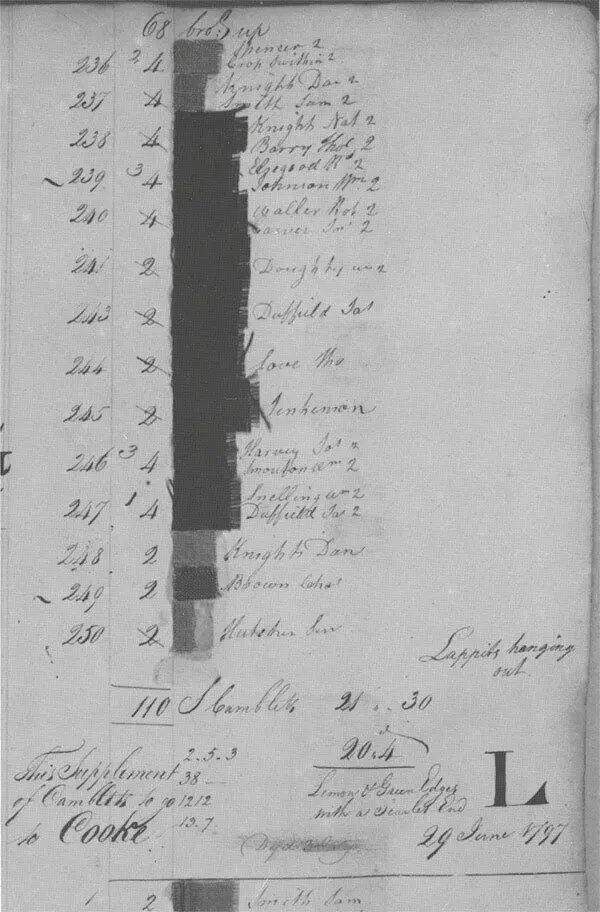 68 bro.t up
Spencer 2
236 2 4 Crop Swithin 2
Knight Dan 2
237 4 Smith Sam 2
Knight Nat 2
238 4 Barry Tho.s 2
Elsegood R.d 2
239 3 4 Johnson Wm 2
Waller Rob 2
240 4 2
241 2 Doughty Wm 2
243 2 Duffield Jas
244 2 Love Tho
245 2 Jenkinson
Harvey Jos 2
246 3 4 Wm 2
Snelling Wm 2
247 1 4 Duffield Jas 2
248 2 Knights Dan
249 2 Brown Chas
250 2
Lappits hanging
out
110 S Camblets 21 .. 30
2.5.3 20.4
This Supplement 38 Lemon & Green Edges L
of Camblets to go 1212 with a Scarlet End
to Cooke 13.7 29 June 1797
1 2 Smith Sam